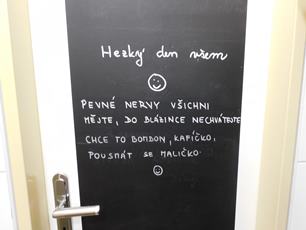 Hezký den všem
PEVNÉ NERVY VŠICHNI
MĚJTE, DO BLÁZINCE NECHVÁTEJTE
CHCE TO BONBON, KAFÍČKO,
POUSMÁT SE MALIČKO.